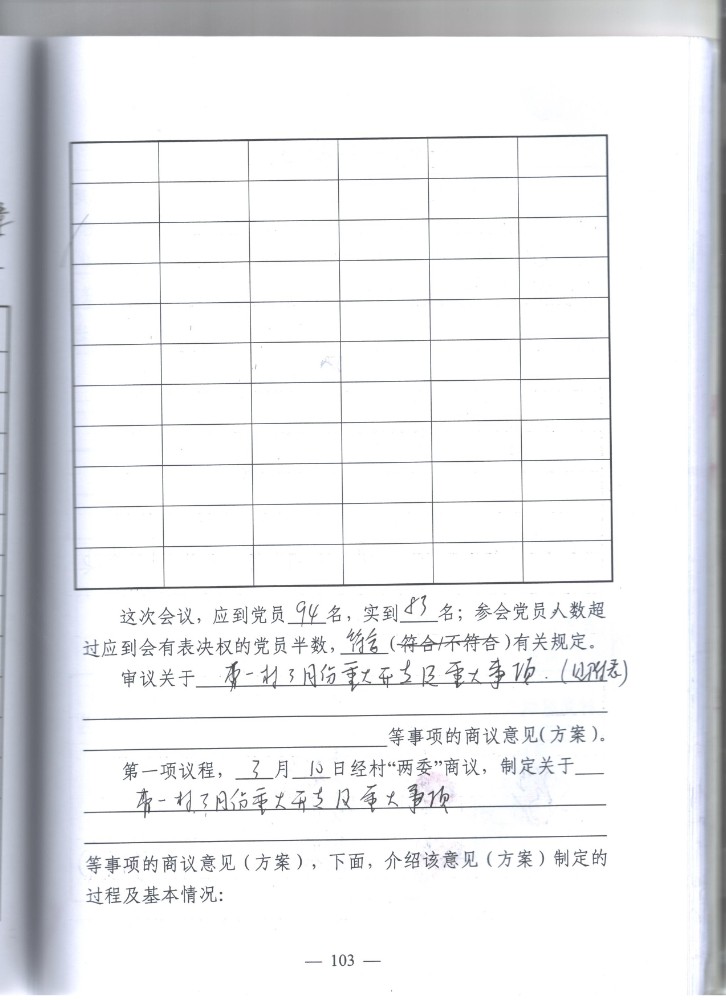 这次会议，应到党员 94 名，实到 83 名；参会党员人数超
过应到会有表决权的党员半数，符合（符合/不符合）有关规定。
审议关于 一村3月份重大开支及重大事项．（见附表）
等事项的商议意见（方案）。
第一项议程， 3 月 10 日经村“两委”商议，制定关于
一村3月份重大开支及重大事项
等事项的商议意见（方案），下面，介绍该意见（方案）制定的
过程及基本情况：
— 103 —